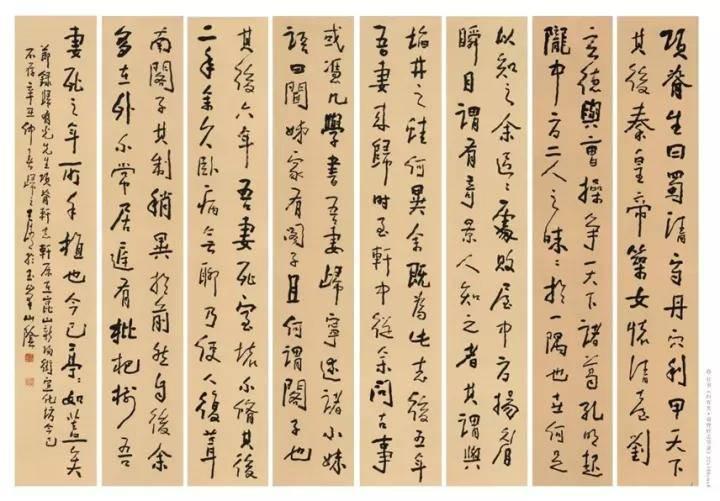 項脊生曰蜀清守丹穴利甲天下
其後秦皇帝築女懷清臺劉
玄德與曹操爭天下諸葛孔明起
隴中方二人之昧〻於一隅也世何足
以知之余區〻處敗屋中方揚眉
瞬目謂有奇景人知之者其謂與
埳井之蛙何異余既為此志後五年
吾妻來歸時至軒中從余問古事
或憑几學書吾妻歸寧述諸小妹
語曰聞姊家有閣子且何謂閣子也
其後六年吾妻死室壞不修其後
二年余久臥病無聊乃使人復葺
南閣子其制稍異於前然自後余
多在外不常居庭有枇杷樹吾
妻死之年所手植也今已亭〻如蓋矣
節錄歸有光先生項脊軒志軒原在崑山新陽街宣化坊今已
不存辛丑仲